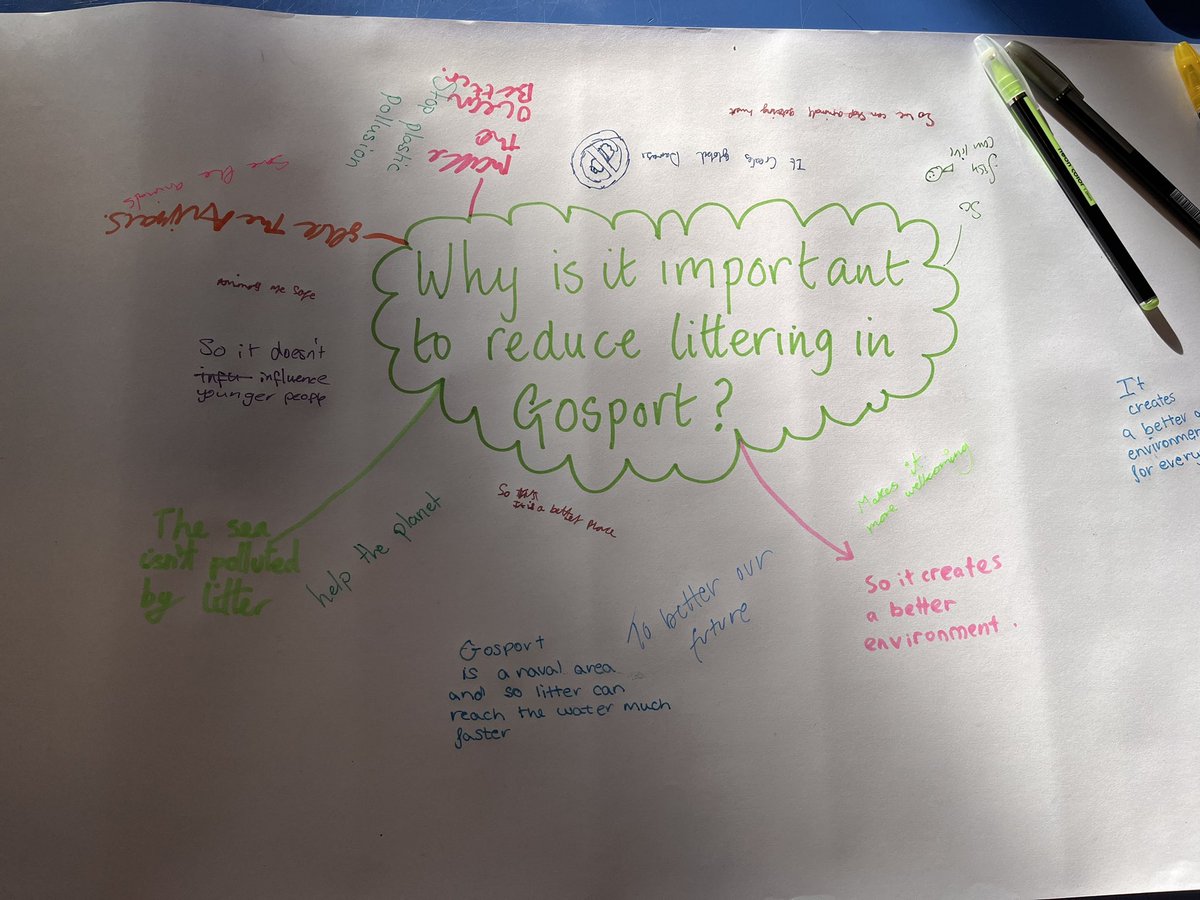 Why is it important
to reduce littering in
Gosport?
make
the
Ocean
Better.
Stop plastic
pollusion
save the animals
save the Animals.
animals are safe
So it doesn't
influence
younger people
The sea
isn't polluted
by litter
help the planet
So
It is a better place
Gosport
is a naval area
and so litter can
reach the water much
faster
To better our
future
So it creates
a better
environment.
Makes it
more wellcoming
It
creates
a better
environmen
for every
So
fish
can live
So we can stop animals getting hurt
It creats global
neon color